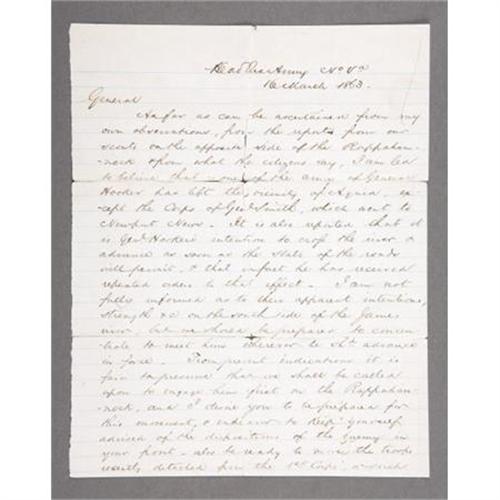 Head Qrs Army No. Va
16 March 1863.
General
As far as can be ascertained from my
own observations, from the reports from our
scouts on the opposite side of the Rappahan-
nock & from what the citizens say, I am led
to believe that none of the army of General
Hooker has left the vicinity of Aquia, ex-
cept the Corps of Genl Smith, which went to
Newport News. It is also reported that it
is Genl Hooker's intention to cross the river &
advance as soon as the state of the roads
will permit, & that in fact he has received
repeated orders to that effect. I am not
fully informed as to their apparent intentions,
strength &c on the south side of the James
river, but we should be prepared to concen-
trate to meet him wherever he shd. advance
in force. From present indications it is
fair to presume that we shall be called
upon to engage him first on the Rappahan-
nock, and I desire you to be prepared for
this movement, & endeavor to keep yourself
advised of the dispositions of the Enemy in
your front - also be ready to move the troops
recently detached from the 1st Corps,